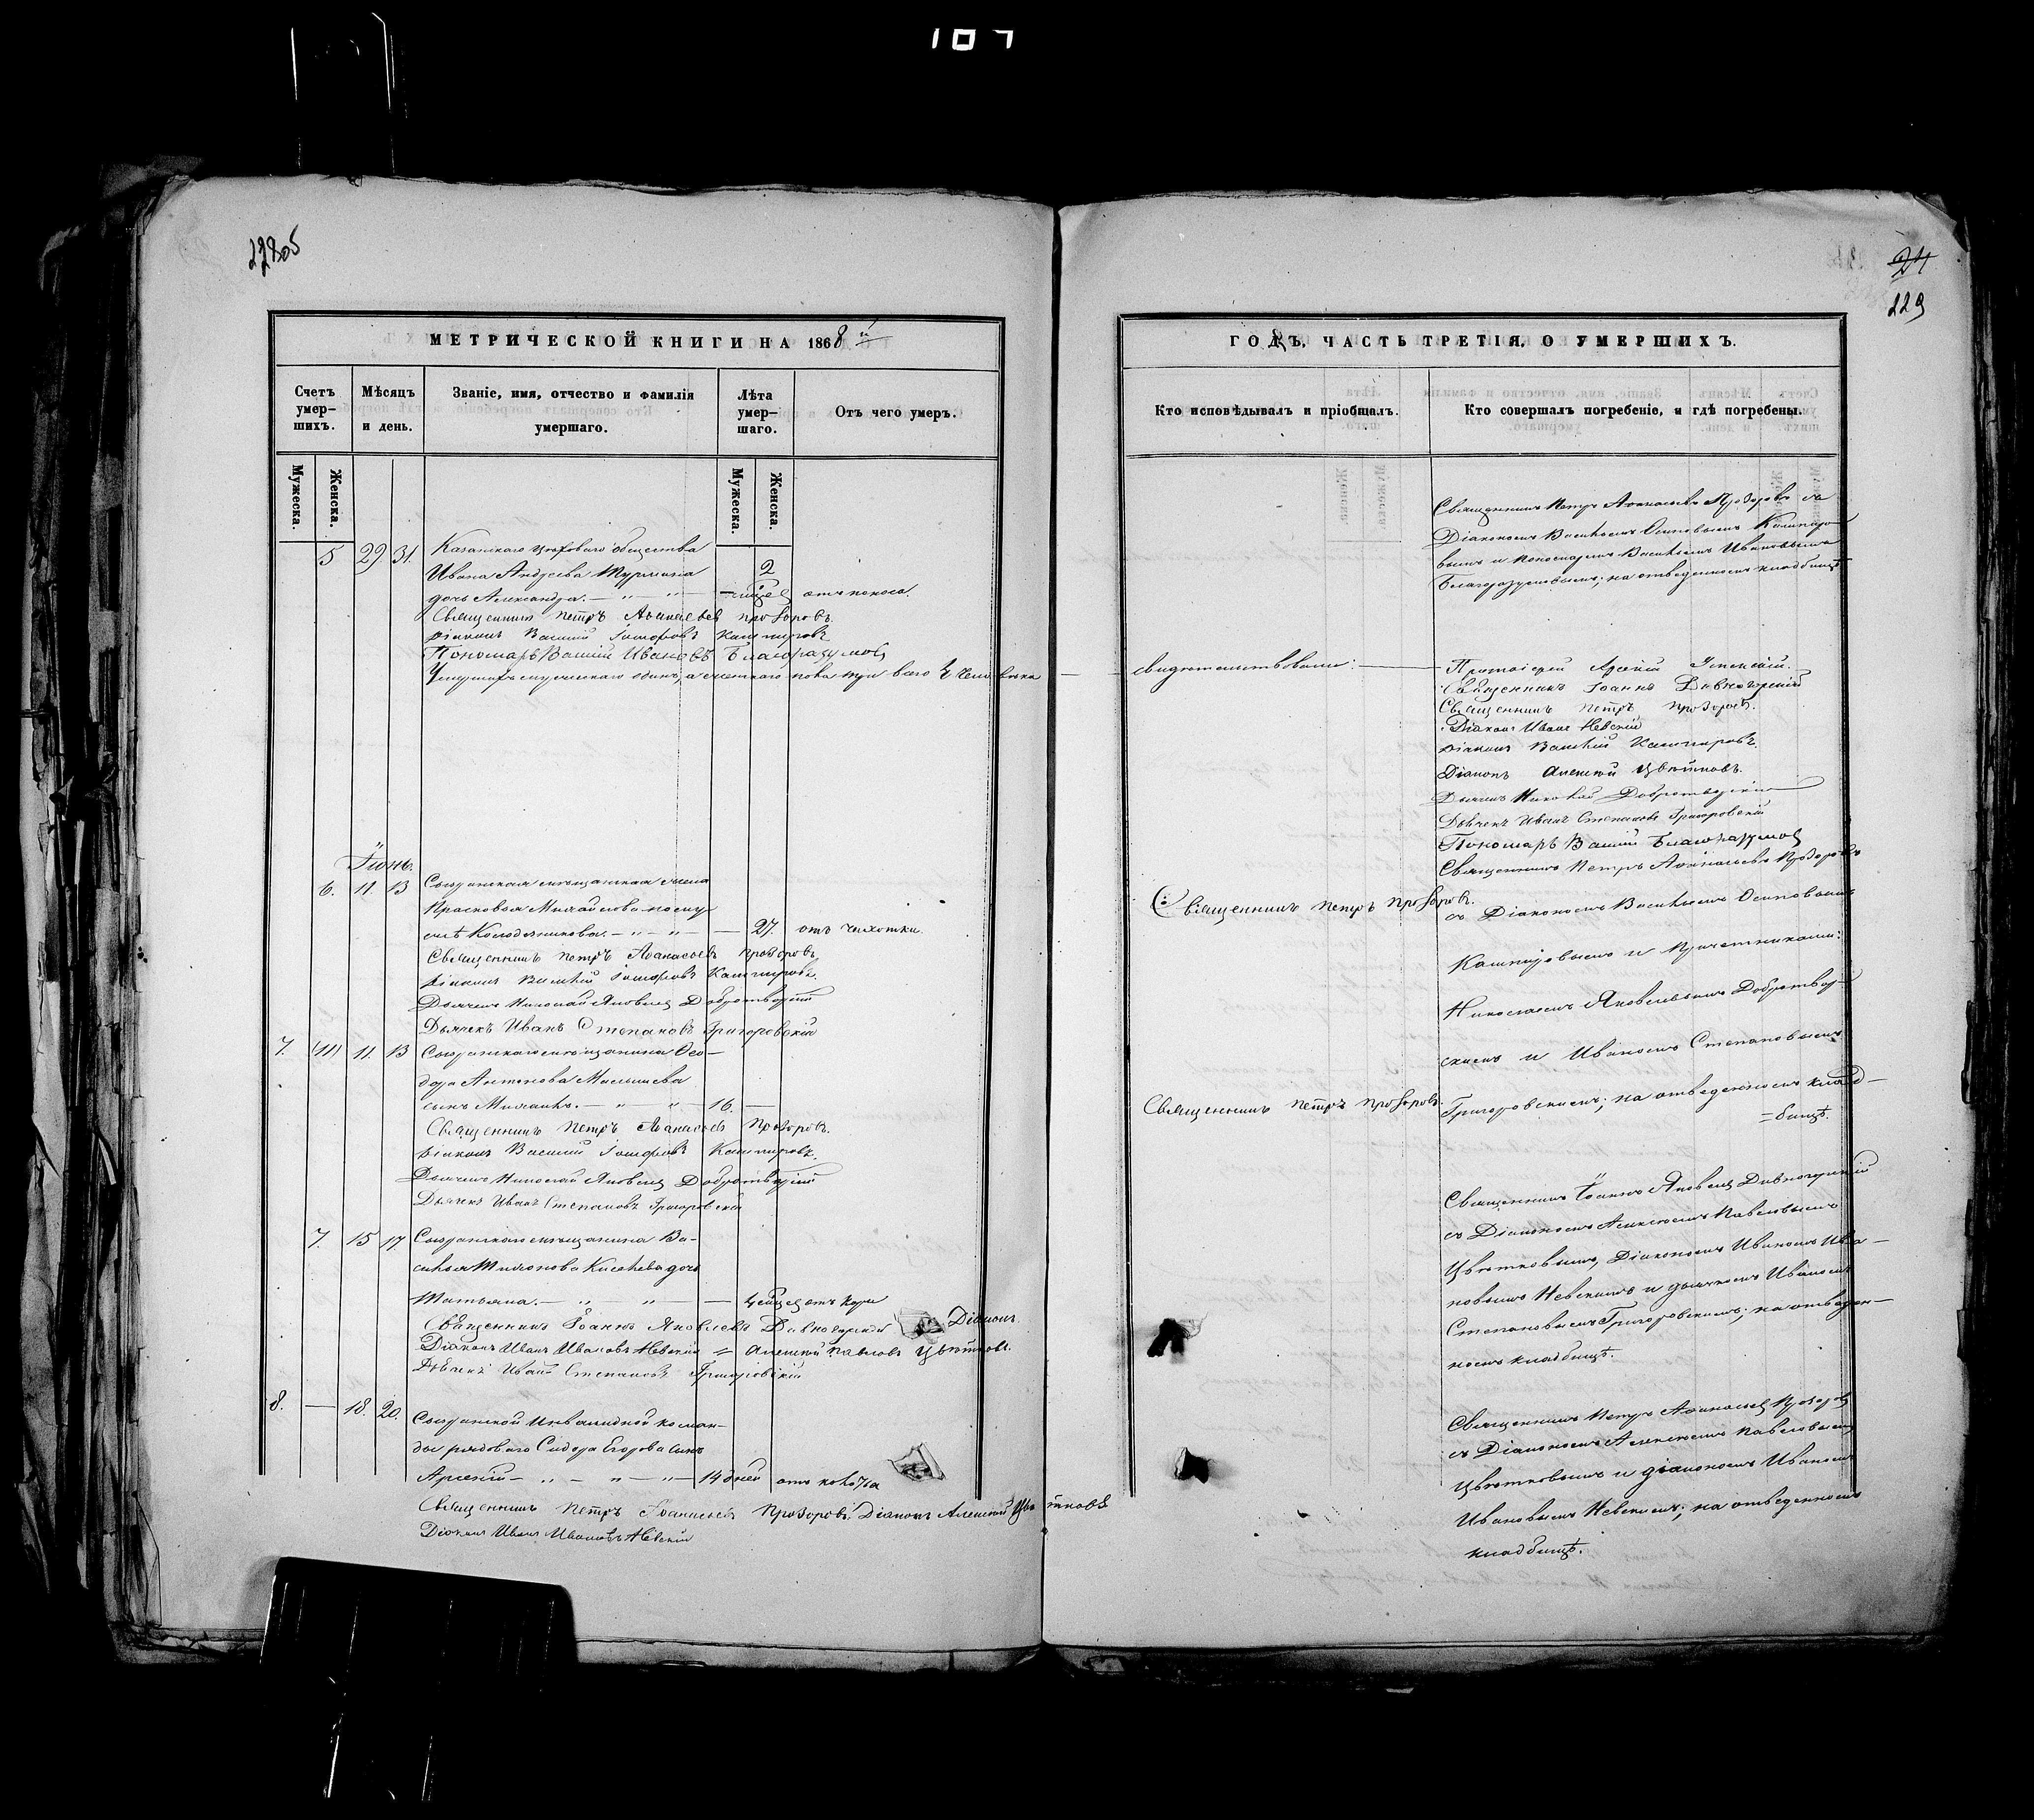 107
24
229
МЕТРИЧЕСКОЙ КНИГИ НА 1868й
Счетъ умер-шихъ.
Мѣсяцъ и день.
Званіе, имя, отчество и фамилія умершаго.
Лѣта умер-шаго.
Отъ чего умеръ.
Мужеска.
Женска.
Мужеска.
Женска.
5 29 31. Казанскаго цеховаго общества
Ивана Андреева
2
дочь Александра. — " — " — отъ поноса.
Священникъ Петръ Аѳанасьевъ Прозоровъ.
Діаконъ Василій Іосифовъ Кашпировъ
Пономарь Василій Ивановъ Благоразумовъ
Іюнь.
6. 11 13 Сызранская мѣщанская жена
Прасковья Михайлова по му-
жѣ Колодезникова. — " — " — — 27. отъ чахотки.
Священникъ Петръ Аѳанасьевъ Прозоровъ.
Діаконъ Василій Іосифовъ Кашпировъ.
Дьячекъ Николай Яковлевъ Добротворскій
Дьячекъ Иванъ Степановъ Григоровскій
7. 11. 13 Сызранскаго мѣщанина Ѳео-
дора Антонова
сынъ Михаилъ. — " — " — 16. —
Священникъ Петръ Аѳанасьевъ Прозоровъ.
Діаконъ Василій Іосифовъ Кашпировъ.
Дьячекъ Николай Яковлевъ Добротворскій
Дьячекъ Иванъ Степановъ Григоровскій
7. 15 17 Сызранскаго мѣщанина Ва-
силья дочь
Татьяна. — " " — — отъ кори
Священникъ Іоаннъ Яковлевъ Дивногорскій Діаконъ
Діаконъ Иванъ Ивановъ Невскій = Алексѣй Павловъ Цвѣтковъ.
Дьячекъ Иванъ Степановъ Григоровскій
8. — 18. 20. Сызранской Инвалидной коман-
ды рядоваго Сидора Егорова сынъ
Арсеній — " — " — " — 14 дней
Священникъ Петръ Аѳанасьевъ Прозоровъ. Діаконъ Алексѣй Цвѣтковъ
Діаконъ Иванъ Ивановъ Невскій
ГОДЪ, ЧАСТЬ ТРЕТІЯ, О УМЕРШИХЪ.
Кто исповѣдывалъ и пріобщалъ.
Кто совершалъ погребеніе, и гдѣ погребены.
Священникъ Петръ Аѳанасьевъ Прозоровъ съ
Діакономъ Васильемъ Осиповымъ Кашпиро-
вымъ и пономаремъ Васильемъ Ивановымъ
Благоразумовымъ; на отведенномъ кладбищѣ
свидѣтельствовали: — Протоіерей
Священникъ Іоаннъ Дивногорскій
Священникъ Петръ Прозоровъ.
Діаконъ Иванъ Невскій
Діаконъ Василій Кашпировъ.
Діаконъ Алексѣй Цвѣтковъ.
Дьячекъ Николай Добротворскій
Дьячекъ Иванъ Степановъ Григоровскій
Пономарь Василій Благоразумовъ
Священникъ Петръ Аѳанасьевъ Прозоровъ
Священникъ Петръ Прозоровъ.
съ Діакономъ Васильемъ Осиповымъ
Кашпировымъ и Причетниками:
Николаемъ Яковлевымъ Добротвор-
скимъ и Иваномъ Степановымъ
Священникъ Петръ Прозоровъ.
Григоровскимъ; на отведенномъ клад-
=бищѣ.
Священникъ Іоаннъ Яковлевъ Дивногорскій
съ Діакономъ Алексѣемъ Павловымъ
Цвѣтковымъ, Діакономъ Иваномъ Ива-
новымъ Невскимъ и дьячкомъ Иваномъ
Степановымъ Григоровскимъ; на отведен-
номъ кладбищѣ.
Священникъ Петръ Аѳанасьевъ Прозоровъ
съ Діакономъ Алексѣемъ Павловымъ
Цвѣтковымъ и діакономъ Иваномъ
Ивановымъ Невскимъ; на отведенномъ
кладбищѣ.